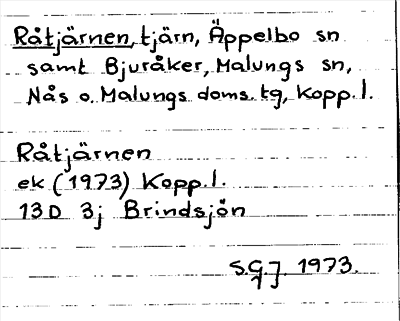 Råtjärnen, tjärn, Äppelbo sn
samt Bjuråker, Malungs sn,
Nås o. Malungs doms. tg, Kopp. l.
Råtjärnen
ek (1973) Kopp. l.
13D 3j Brindsjön
S.G.J. 1973.